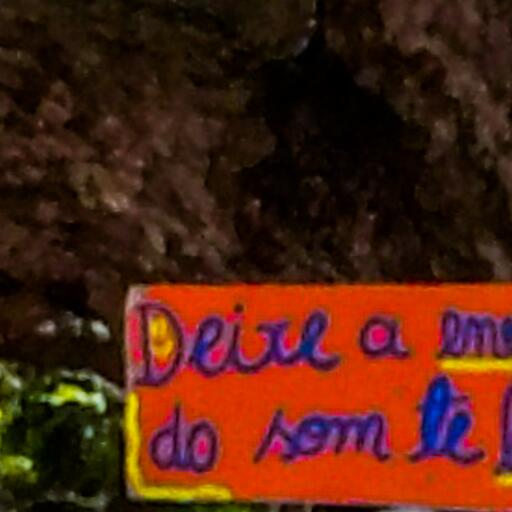 Deixe a ene
do som te l